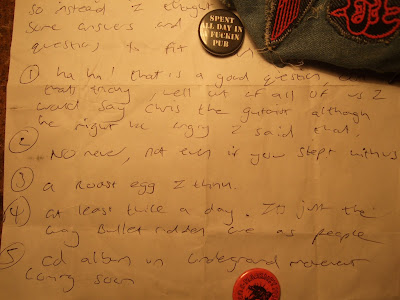 so instead I thought
some answers and
questions to fit
SPENT
ALL DAY IN
FUCKIN'
PUB
① ha ha! that is a good question,
that many, well out of all of us I
would say Chris the guitarist although
he might be angry I said that.
② NO never, not even if you slept with us
③ a roast egg I think.
④ at least twice a day. It's just the
way Bullet ridden are as people
⑤ cd album on underground movement
coming soon